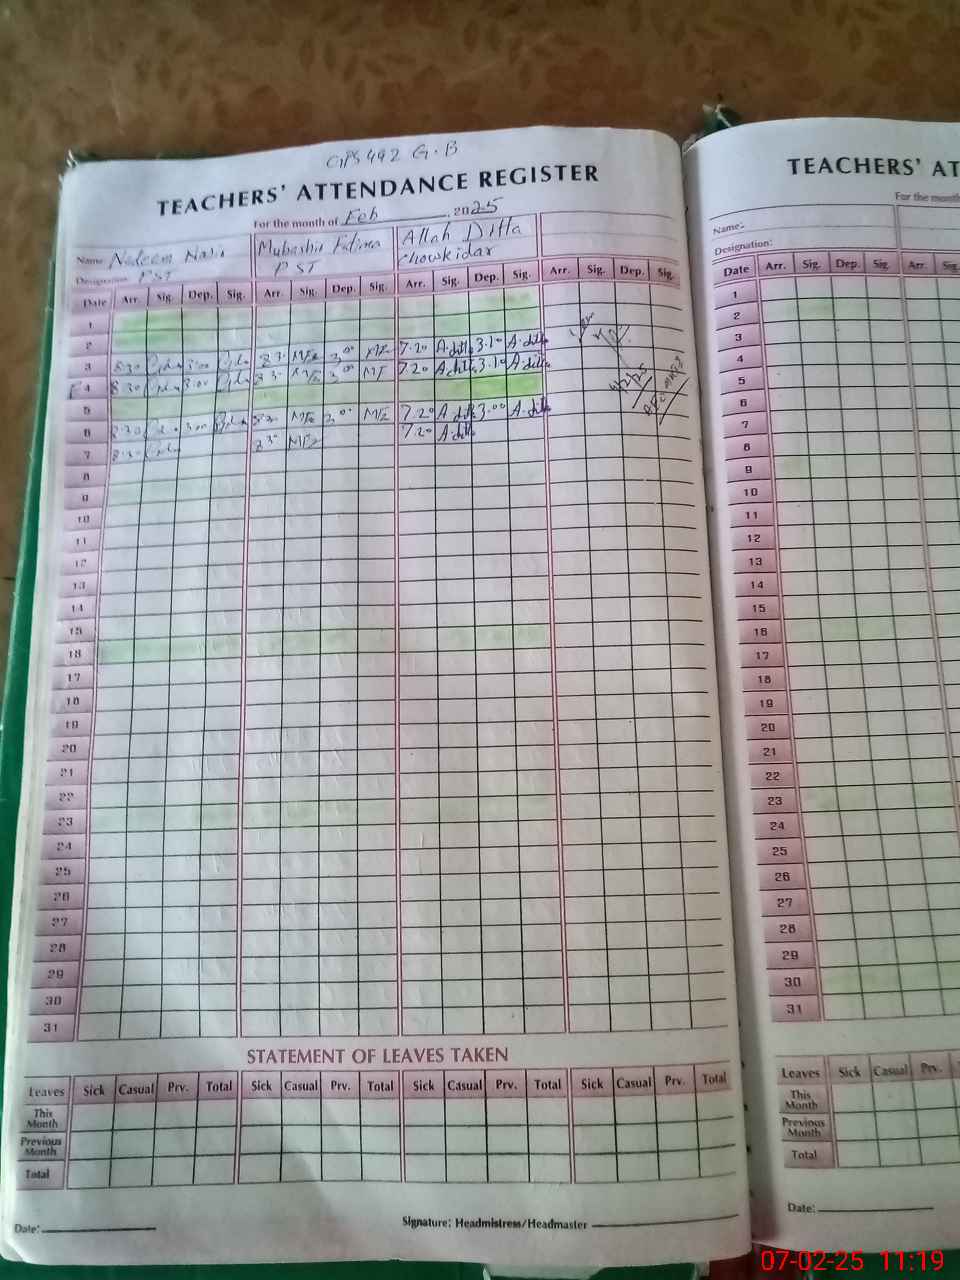 GPS 492 G.B
TEACHERS' ATTENDANCE REGISTER
For the month of Feb 2025
Name Nadeem Mubashir Fatima Allah Ditta
Designation PST PST Chowkidar
Date Arr. Sig. Dep. Sig. Arr. Sig. Dep. Sig. Arr. Sig. Dep. Sig. Arr. Sig. Dep. Sig.
1
2
3 8:30 3:00 8:30 M/F 3:00 M/F 7:20 A.ditta 3:10 A.ditta
4 8:30 3:00 8:30 M/F 3:00 M/F 7:20 A.ditta 3:10 A.ditta
5
6 8:30 3:00 8:30 M/F 3:00 M/F 7:20 A.ditta 3:00 A.ditta
7 8:30 8:30 M/F 7:20 A.ditta
8
9
10
11
12
13
14
15
16
17
18
19
20
21
22
23
24
25
26
27
28
29
30
31
4/2/25
STATEMENT OF LEAVES TAKEN
Leaves Sick Casual Prv. Total Sick Casual Prv. Total Sick Casual Prv. Total Sick Casual Prv. Total
This Month
Previous Month
Total
Date:
Signature: Headmistress/Headmaster
TEACHERS' AT
For the month
Name:
Designation:
Date Arr. Sig. Dep. Sig. Arr.
1
2
3
4
5
6
7
8
9
10
11
12
13
14
15
16
17
18
19
20
21
22
23
24
25
26
27
28
29
30
31
Leaves Sick Casual Prv.
This Month
Previous Month
Total
Date:
07-02-25 11:19